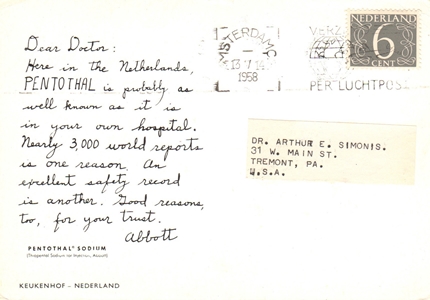 Dear Doctor:
Here in the Netherlands,
PENTOTHAL is probably as
well known as it is
in your own hospital.
Nearly 3,000 world reports
is one reason. An
excellent safety record
is another. Good reasons,
too, for your trust.
Abbott
PENTOTHAL® SODIUM
(Thiopental Sodium for Injection, Abbott)
KEUKENHOF – NEDERLAND
AMSTERDAM
1958
PER LUCHTPOST
NEDERLAND
6
CENT
DR. ARTHUR E. SIMONIS.
31 W. MAIN ST.
TREMONT, PA.
U.S.A.